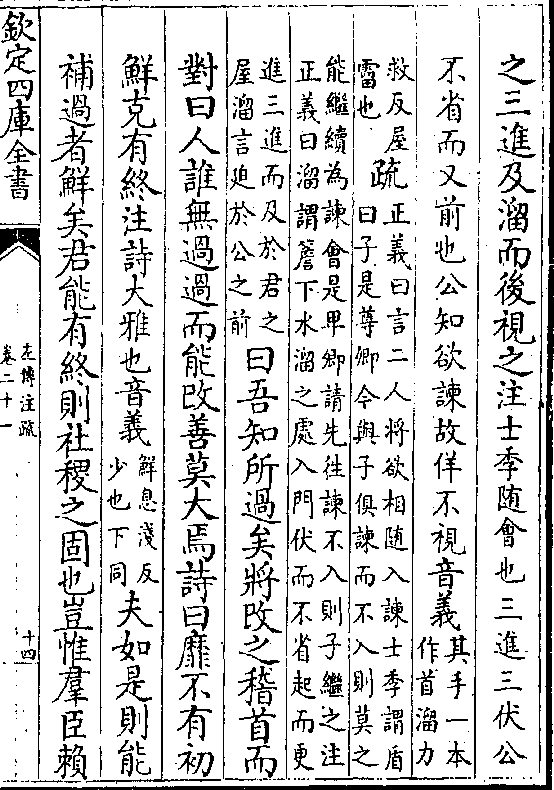 之三進及溜而後視之注士季隨會也三進三伏公
不省而又前也公知欲諫故佯不視音義其手一本作首溜力
救反屋霤也疏正義曰言二人將欲相隨入諫士季謂盾曰子是尊卿今與子俱諫而不入則莫之
能繼續為諫會是卑卿請先往諫不入則子繼之注正義曰溜謂簷下水溜之處入門伏而不省起而更
進三進而及於君之屋溜言迫於公之前曰吾知所過矣將改之稽首而
對曰人誰無過過而能改善莫大焉詩曰靡不有初
鮮克有終注詩大雅也音義鮮息淺反少也下同夫如是則能
補過者鮮矣君能有終則社稷之固也豈惟羣臣賴
欽定四庫全書
左傳注疏
卷二十一
十四